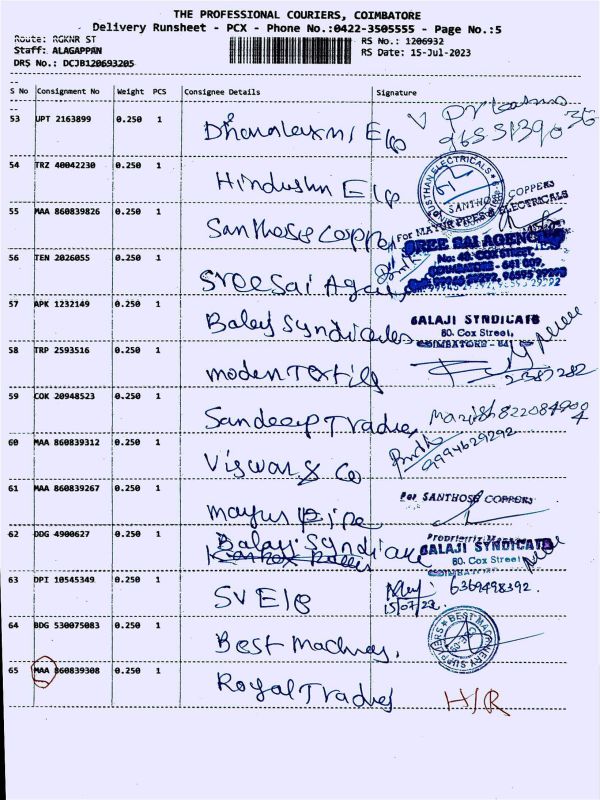 THE PROFESSIONAL COURIERS, COIMBATORE
Delivery Runsheet - PCX - Phone No.:0422-3505555 - Page No.:5
Route: RGKNR ST
RS No.: 1206932
Staff: ALAGAPPAN
RS Date: 15-Jul-2023
DRS No.: DCJB120693205
S No Consignment No Weight PCS Consignee Details Signature
53 UPT 2163899 0.250 1
54 TRZ 40042230 0.250 1 Hindustan Elp
SANTHOSH COPPERS
55 MAA 860839826 0.250 1 Santhose Copper
For MAYUR PIPES & ELECTRICALS
56 TEN 2026055 0.250 1 Sree Sai
SREE SAI AGENCIES
No: 48, COX STREET,
COIMBATORE - 641 009.
57 APK 1232149 0.250 1 Balaji Syndicates
BALAJI SYNDICATE
80. Cox Street,
COIMBATORE - 641
58 TRP 2593516 0.250 1 moden Textile
59 COK 20948523 0.250 1 Sandeep Trades
60 MAA 860839312 0.250 1 Viswas & Co
9994629292
61 MAA 860839267 0.250 1 mayur pipe
For SANTHOSH COPPERS
62 DDG 4900627 0.250 1 Balaji Syndicate
BALAJI SYNDICATE
80. Cox Street
63 DPI 10545349 0.250 1 SV Elp 6369498392
15/07/23
64 BDG 530075083 0.250 1 Best Machinery
BEST MACHINERY SUPPLIERS
65 MAA 860839308 0.250 1 Royal Trades H/R